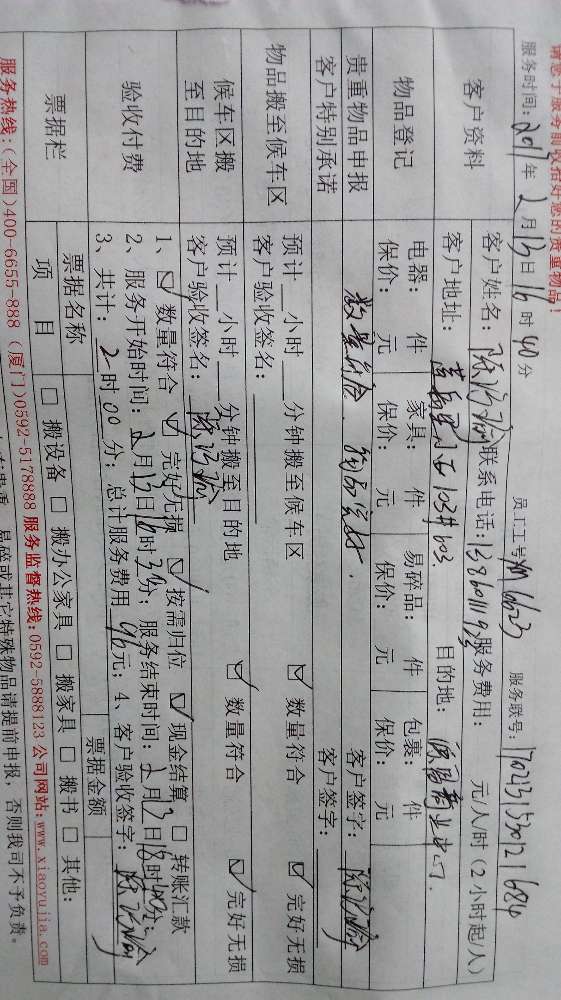 请您于服务前收拾好您的贵重物品！
服务时间：2017年2月13日16时40分 员工工号 6623 服务联号：1702131530121684
客户资料
客户姓名： 联系电话： 服务费用： 元/人/时（2小时起/人）
客户地址： 103# 603 目的地： 商业中心
物品登记
电器： 件 家具： 件 易碎品： 件 包裹： 件
保价： 元 保价： 元 保价： 元 保价： 元
贵重物品申报 客户签字：
客户特别承诺 客户签字：
物品搬至候车区
预计 小时 分钟搬至候车区 ☑ 数量符合 ☑ 完好无损
客户验收签名：
候车区搬至目的地
预计 小时 分钟搬至目的地 ☑ 数量符合 ☑ 完好无损
客户验收签名：
验收付费
1、☑ 数量符合 ☑ 完好无损 ☑ 按需归位 ☑ 现金结算 □ 转账汇款
2、服务开始时间：2月13日16时30分；服务结束时间：2月13日18时40分；
3、共计：2时00分；总计服务费用96元；4、客户验收签字：
票据栏
票据名称 票据金额
项目 □ 搬设备 □ 搬办公家具 □ 搬家具 □ 搬书 □ 其他：
易碎或其它特殊物品请提前申报，否则我司不予负责。
服务热线：（全国）400-6655-888（厦门）0592-5178888 服务监督热线：0592-5888123 公司网站：www.xiaoyujia.com